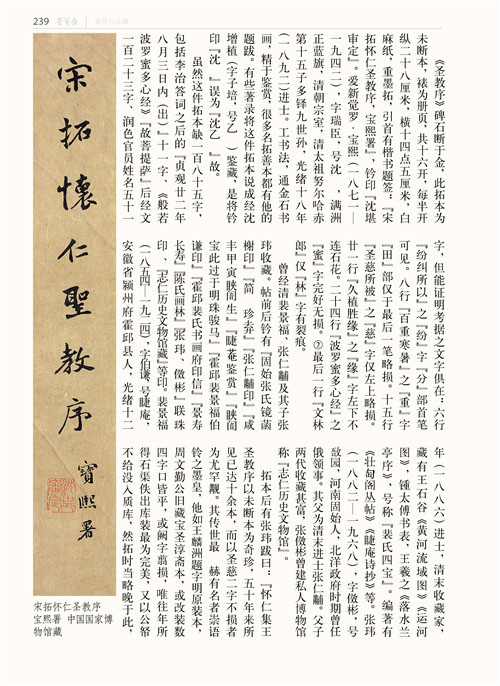 239
《圣教序》碑石断于金，此拓本为
未断本，裱为册页，共十六开，每半开
纵二十八厘米，横十四点五厘米，白
麻纸，重墨拓，引首有楷书题签：『宋
拓怀仁圣教序，宝熙署』，钤印『沈堪
审定』。爱新觉罗·宝熙（一八七一—
一九四二），字瑞臣，号沈　，满洲
正蓝旗，清朝宗室，清太祖努尔哈赤
第十五子多铎九世孙，光绪十八年
（一八九二）进士。工书法，通金石书
画，精于鉴赏，很多名拓善本都有他的
题跋。有些著录将这件拓本说成经沈
增植（字子培，号乙　）鉴藏，是将钤
印『沈　』误为『沈乙　』故。
虽然这件拓本缺一百八十五字，
包括李治答词之后的『贞观廿二年
八月三日内（出）』十一字，《般若
波罗蜜多心经》『故菩提萨』后经文
一百二十三字，润色官员姓名五十一
字，但能证明考据之文字俱在：六行
『纷纠所以』之『纷』字『分』部首笔
可见。八行『百重寒暑』之『重』字
『田』部仅于最后一笔略损。十五行
『圣慈所被』之『慈』字仅左上略损。
廿一行『久植胜缘』之『缘』字左下不
连石花。二十四行『波罗蜜多心经』之
『蜜』字完好无损。⑦最后一行『文林
郎』仅『林』字有裂痕。
曾经清裴景福、张仁黼及其子张
玮收藏。帖前后钤有『固始张氏镜菡
榭印』『简　珍寿』『张仁黼印』『咸
丰甲寅陕生』『睫庵鉴赏』『陕
宝此过于明珠骏马』『霍邱裴景福伯
谦印』『霍邱裴氏书画府印信』『景寿
长寿』『陈氏画林』『张玮、傚彬』联珠
印、『志仁历史文物馆藏』等印。裴景福
（一八五四—一九二四），字伯谦，号睫庵，
安徽省颍州府霍邱县人，光绪十二
年（一八八六）进士，清末收藏家，
藏有王石谷《黄河流域图》《运河
图》，锺太傅书表、王羲之《落水兰
亭序》，号称『裴氏四宝』。编著有
《壮陶阁丛帖》《睫庵诗抄》等。张玮
（一八八二—一九六八），字傚彬，号
敔园，河南固始人，北洋政府时期曾任
俄领事。其父为清末进士张仁黼。父子
两代收藏甚富，张傚彬曾建私人博物馆
称『志仁历史文物馆』。
拓本后有张玮跋曰：『怀仁集王
圣教序以未断本为奇珍，五十年来所
见已达十余本，而以圣慈二字不损者
为尤罕觏。其传世最　赫有名者崇语
铃之墨皇，他如王麟洲题字明原装本，
周文勤公旧藏宝圣淳斋本，或改装数
四字口皆平，或阙字翦损，唯往年所
得石渠佚出库装最为完美，又以公帑
不给没入质库，然拓时当略晚于此，
宋拓懷仁聖教序
寶熙署
宋拓怀仁圣教序
宝熙署 中国国家博
物馆藏